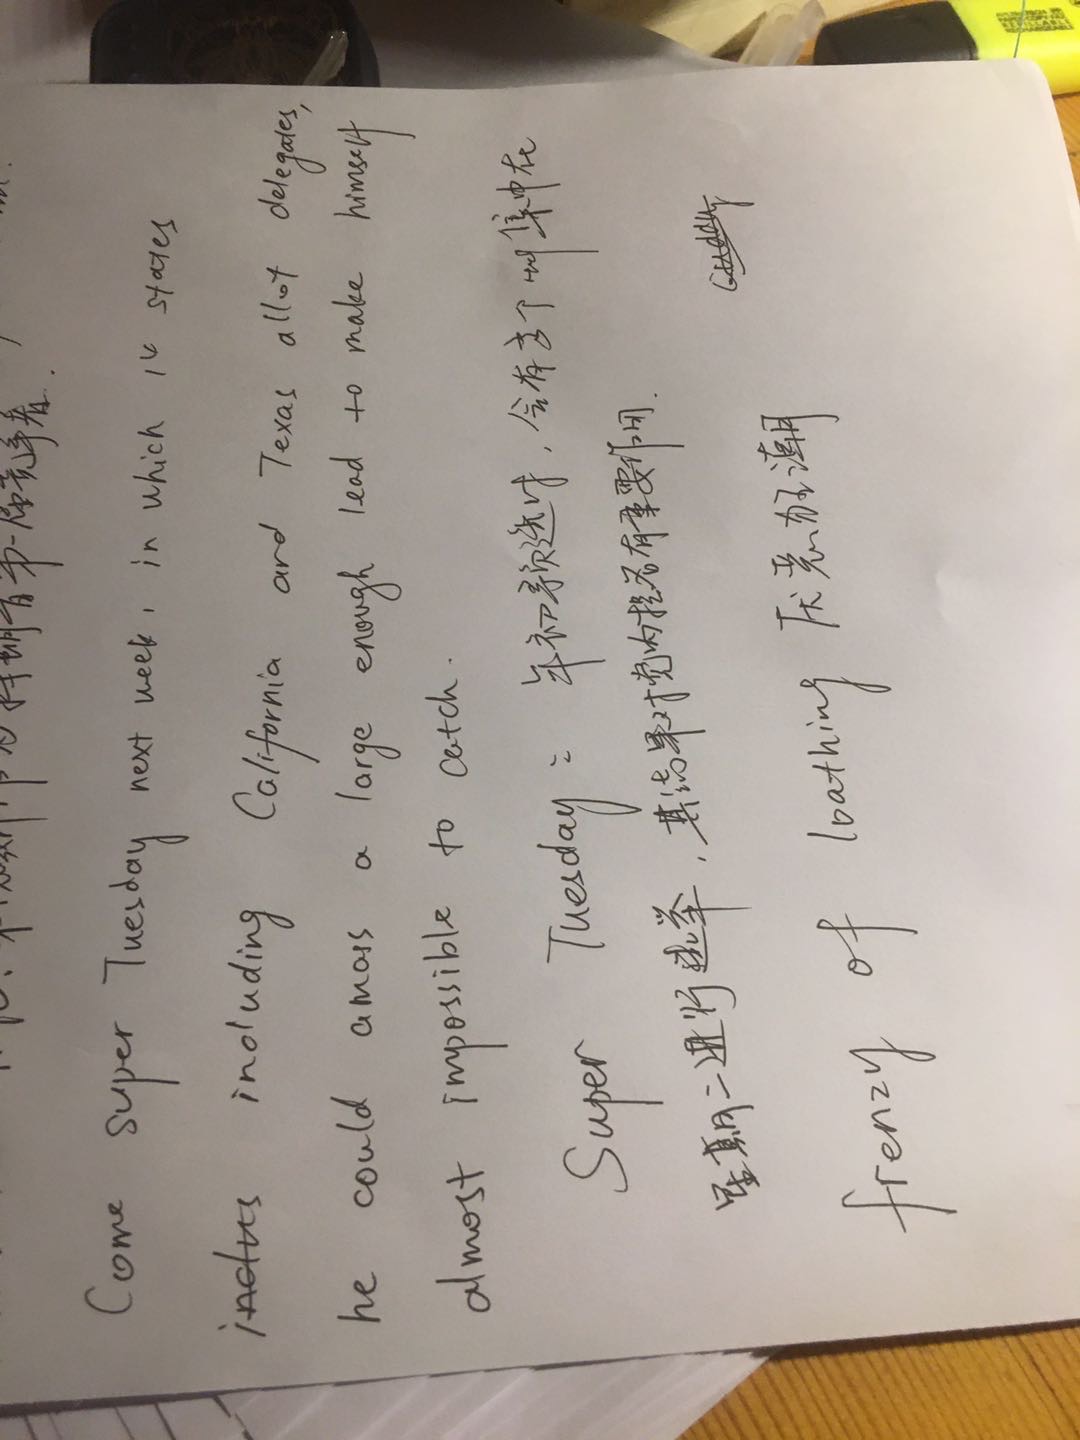 领
者.
Come super Tuesday next week, in which 14 states
including California and Texas allot delegates,
he could amass a large enough lead to make himself
almost impossible to catch.
Super Tuesday: 年初预选时,会有多个州集中在
星期二进行选举,其结果对党内提名有重要作用.
frenzy of loathing 厌恶狂潮